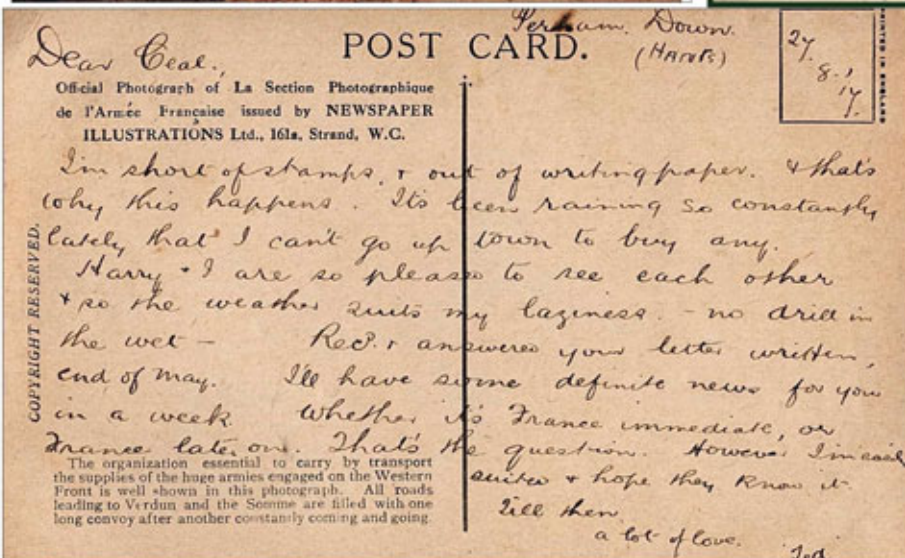 Perham Down.
(HANTS)
27.
8.,
17.
PRINTED IN ENGLAND
Dear Ceal.,
POST CARD.
Official Photograph of La Section Photographique
de l'Armée Française issued by NEWSPAPER
ILLUSTRATIONS Ltd., 161a, Strand, W.C.
I'm short of stamps, + out of writing paper. + that's
why this happens. Its been raining so constantly
lately that I can't go up town to buy any.
Harry + I are so please to see each other
+ so the weather suits my laziness. - no drill in
the wet - Recd. + answered your letter written,
end of May. I'll have some definite news for you
in a week whether it's France immediate, or
France later on. That's the question. However I'm easily
suited + hope they know it.
Till then
a lot of love.
Ted
COPYRIGHT RESERVED.
The organization essential to carry by transport
the supplies of the huge armies engaged on the Western
Front is well shown in this photograph. All roads
leading to Verdun and the Somme are filled with one
long convoy after another constantly coming and going.